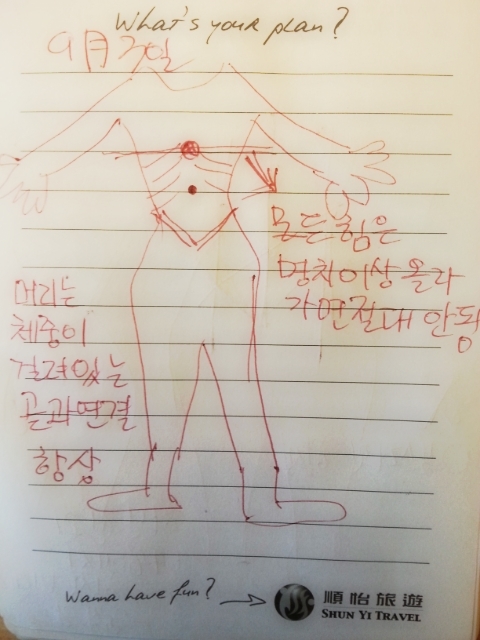 What's your plan?
9月 30일
모든 힘은
명치이상 올라
가면절대 안됨
머리는
체중이
걸려있는
골과연결
항상
Wanna have fun?
順怡旅遊
SHUN YI TRAVEL